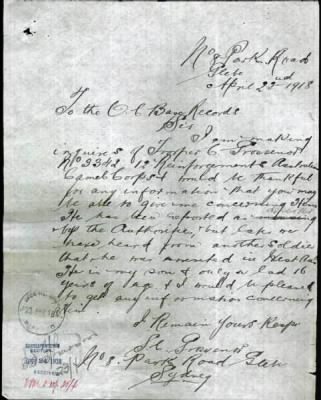 No 9 Park Road
Glebe
April 22nd 1918
To the O.C. Base Records
Sir
I am making
inquires of Trooper C. Grosvenor
No 3342, 12 Reinforcements Australian
Camel Corps I would be thankful
for any information that you may
be able to give me concerning Him
He has been reported as missing
by the Authorities, but Late we
have heard from another soldier
that he was arrested in
He is my son & only a lad 16
years of age & I would be pleased
to get any information concerning
him
I Remain Yours Resp
Grosvenor
No 9 Park Road Glebe
Sydney